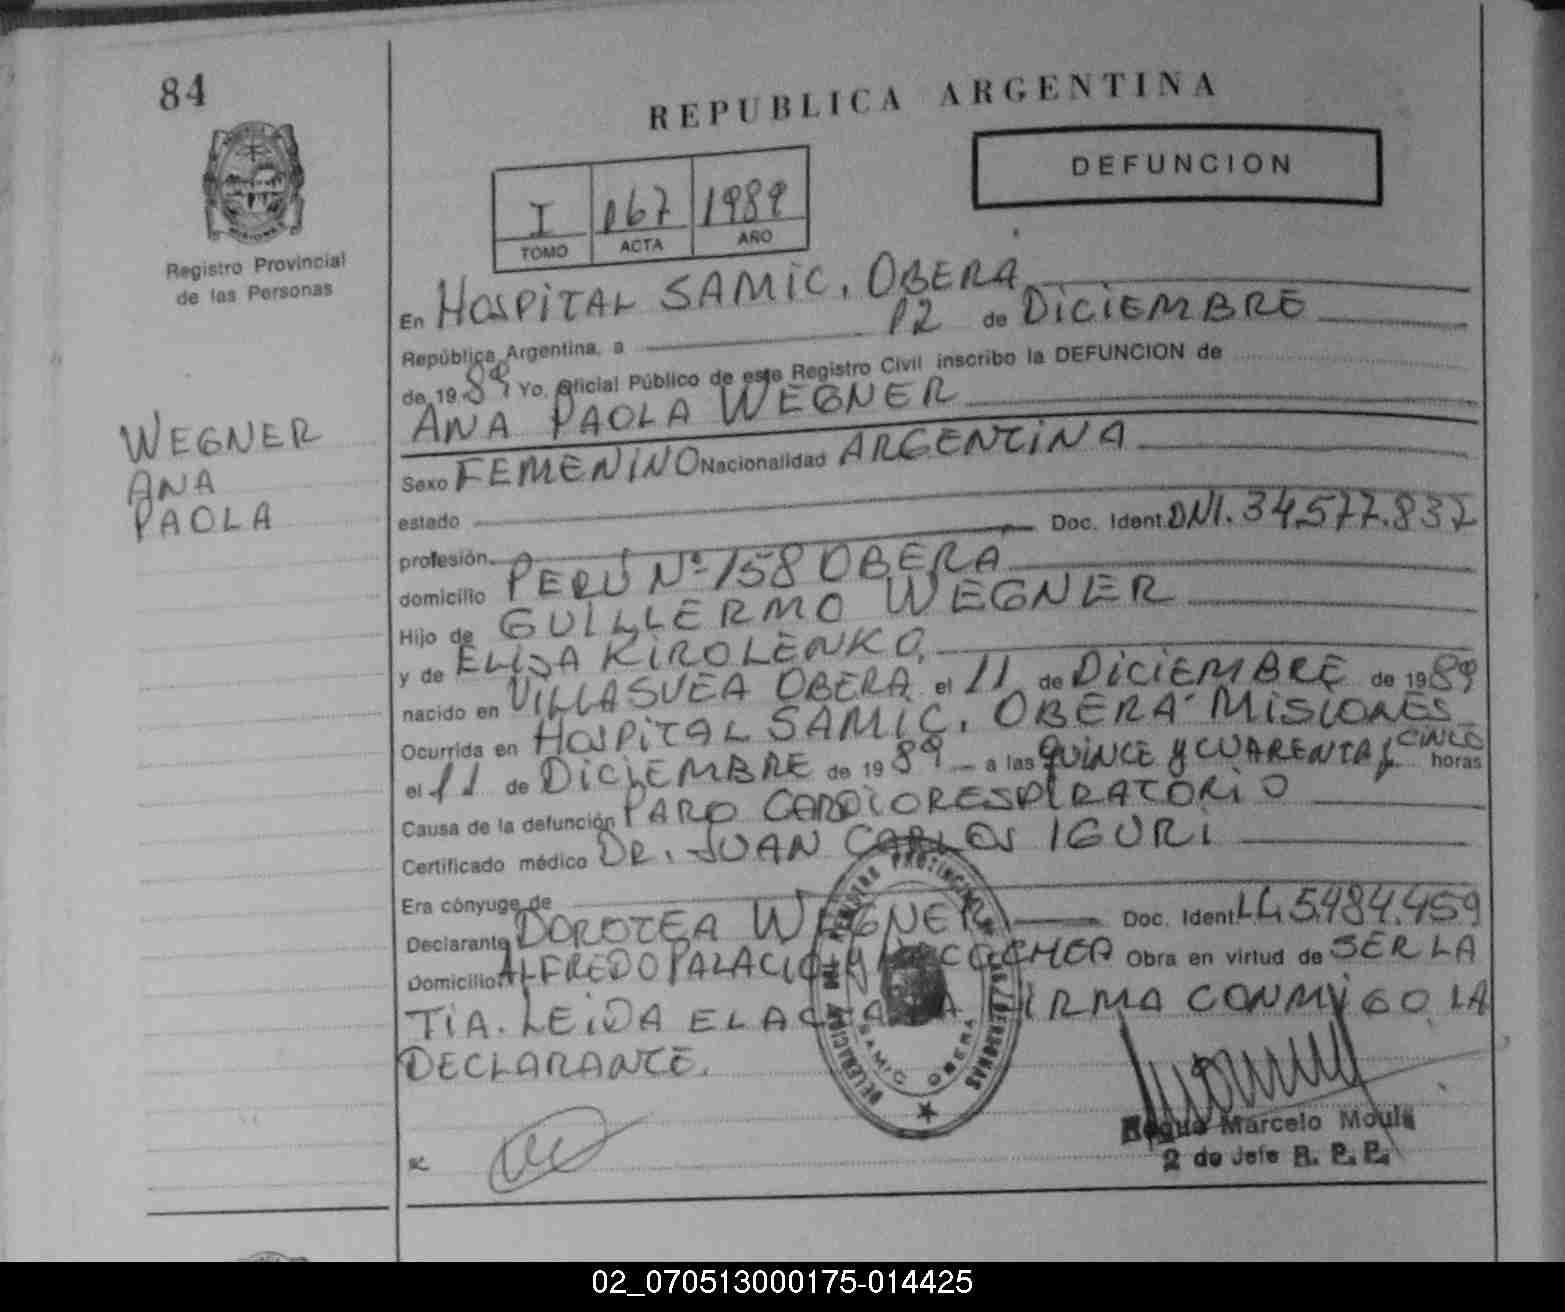 84
REPUBLICA ARGENTINA
DEFUNCION
I 167 1989
TOMO ACTA AÑO
Registro Provincial
de las Personas
WEGNER
ANA
PAOLA
En HOSPITAL SAMIC, OBERA
República Argentina, a 12 de DICIEMBRE
de 1989 Yo, Oficial Público de este Registro Civil inscribo la DEFUNCION de
ANA PAOLA WEGNER
Sexo FEMENINO Nacionalidad ARGENTINA
estado Doc. Ident. DNI. 34.577.837
profesión
domicilio PERÚ Nº 158 OBERA
Hijo de GUILLERMO WEGNER
y de ELISA KIROLENKO,
nacido en VILLASUEA OBERA el 11 de DICIEMBRE de 1989
Ocurrida en HOSPITAL SAMIC, OBERA MISIONES
el 11 de DICIEMBRE de 1989 a las QUINCE y CUARENTA y CINCO horas
Causa de la defunción PARO CARDIORESPIRATORIO
Certificado médico DR. JUAN CARLOS IGURI
Era cónyuge de
Declarante DOROTEA WEGNER Doc. Ident. L.C. 5.484.459
Domicilio ALFREDO PALACIO y NECOCHEA Obra en virtud de SER LA
TIA. LEIDA EL ACTA LA FIRMA CONMIGO LA
DECLARANTE.
REGISTRO PROVINCIAL DE LAS PERSONAS
DELEGACION
SAMIC OBERA
Marcelo Moula
2 do Jefe R. P. P.
02_070513000175-014425